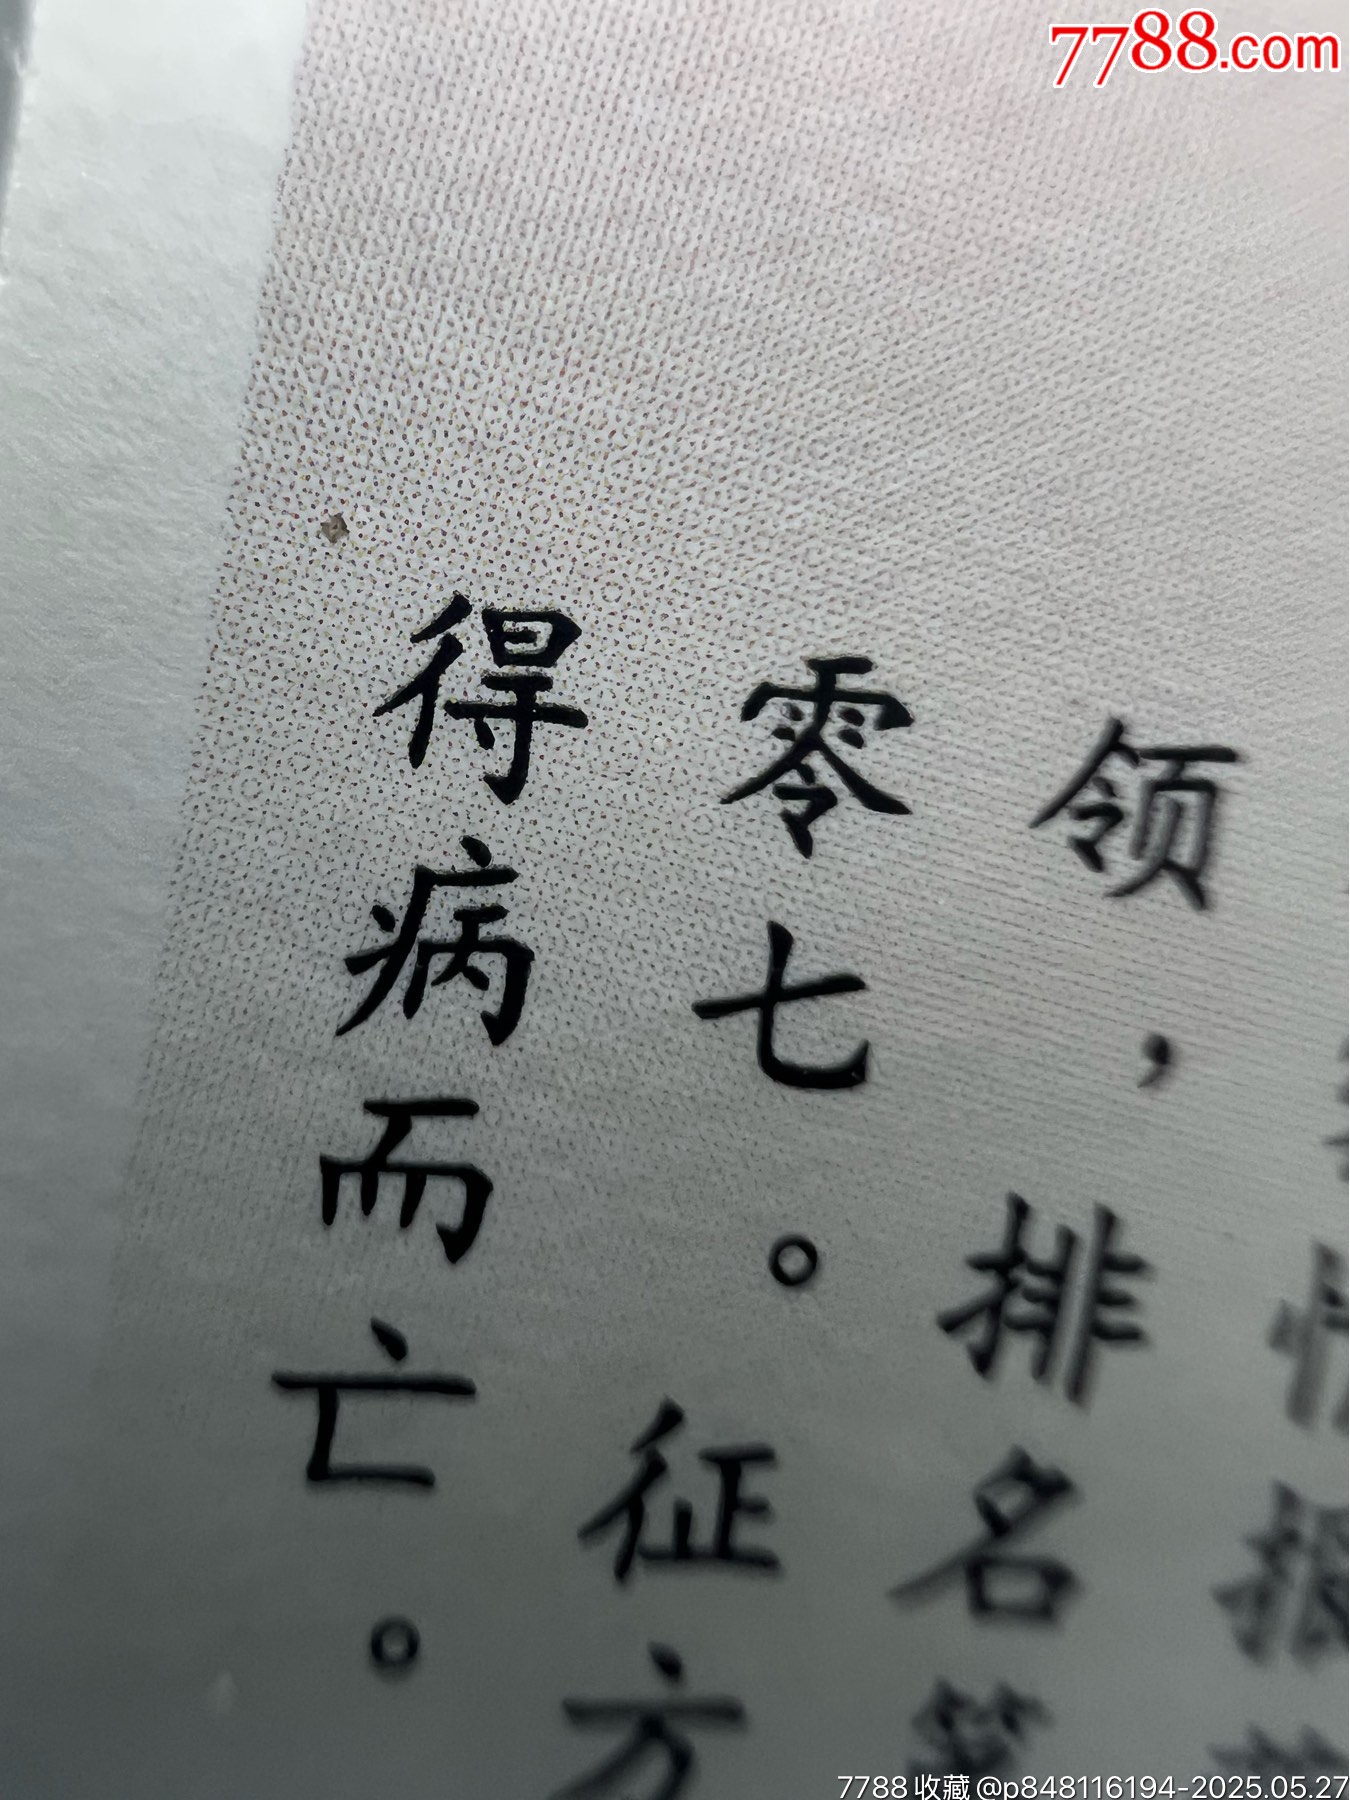 7788.com
领，排名第
零七。征方
得病而亡。
7788收藏@p848116194-2025.05.27